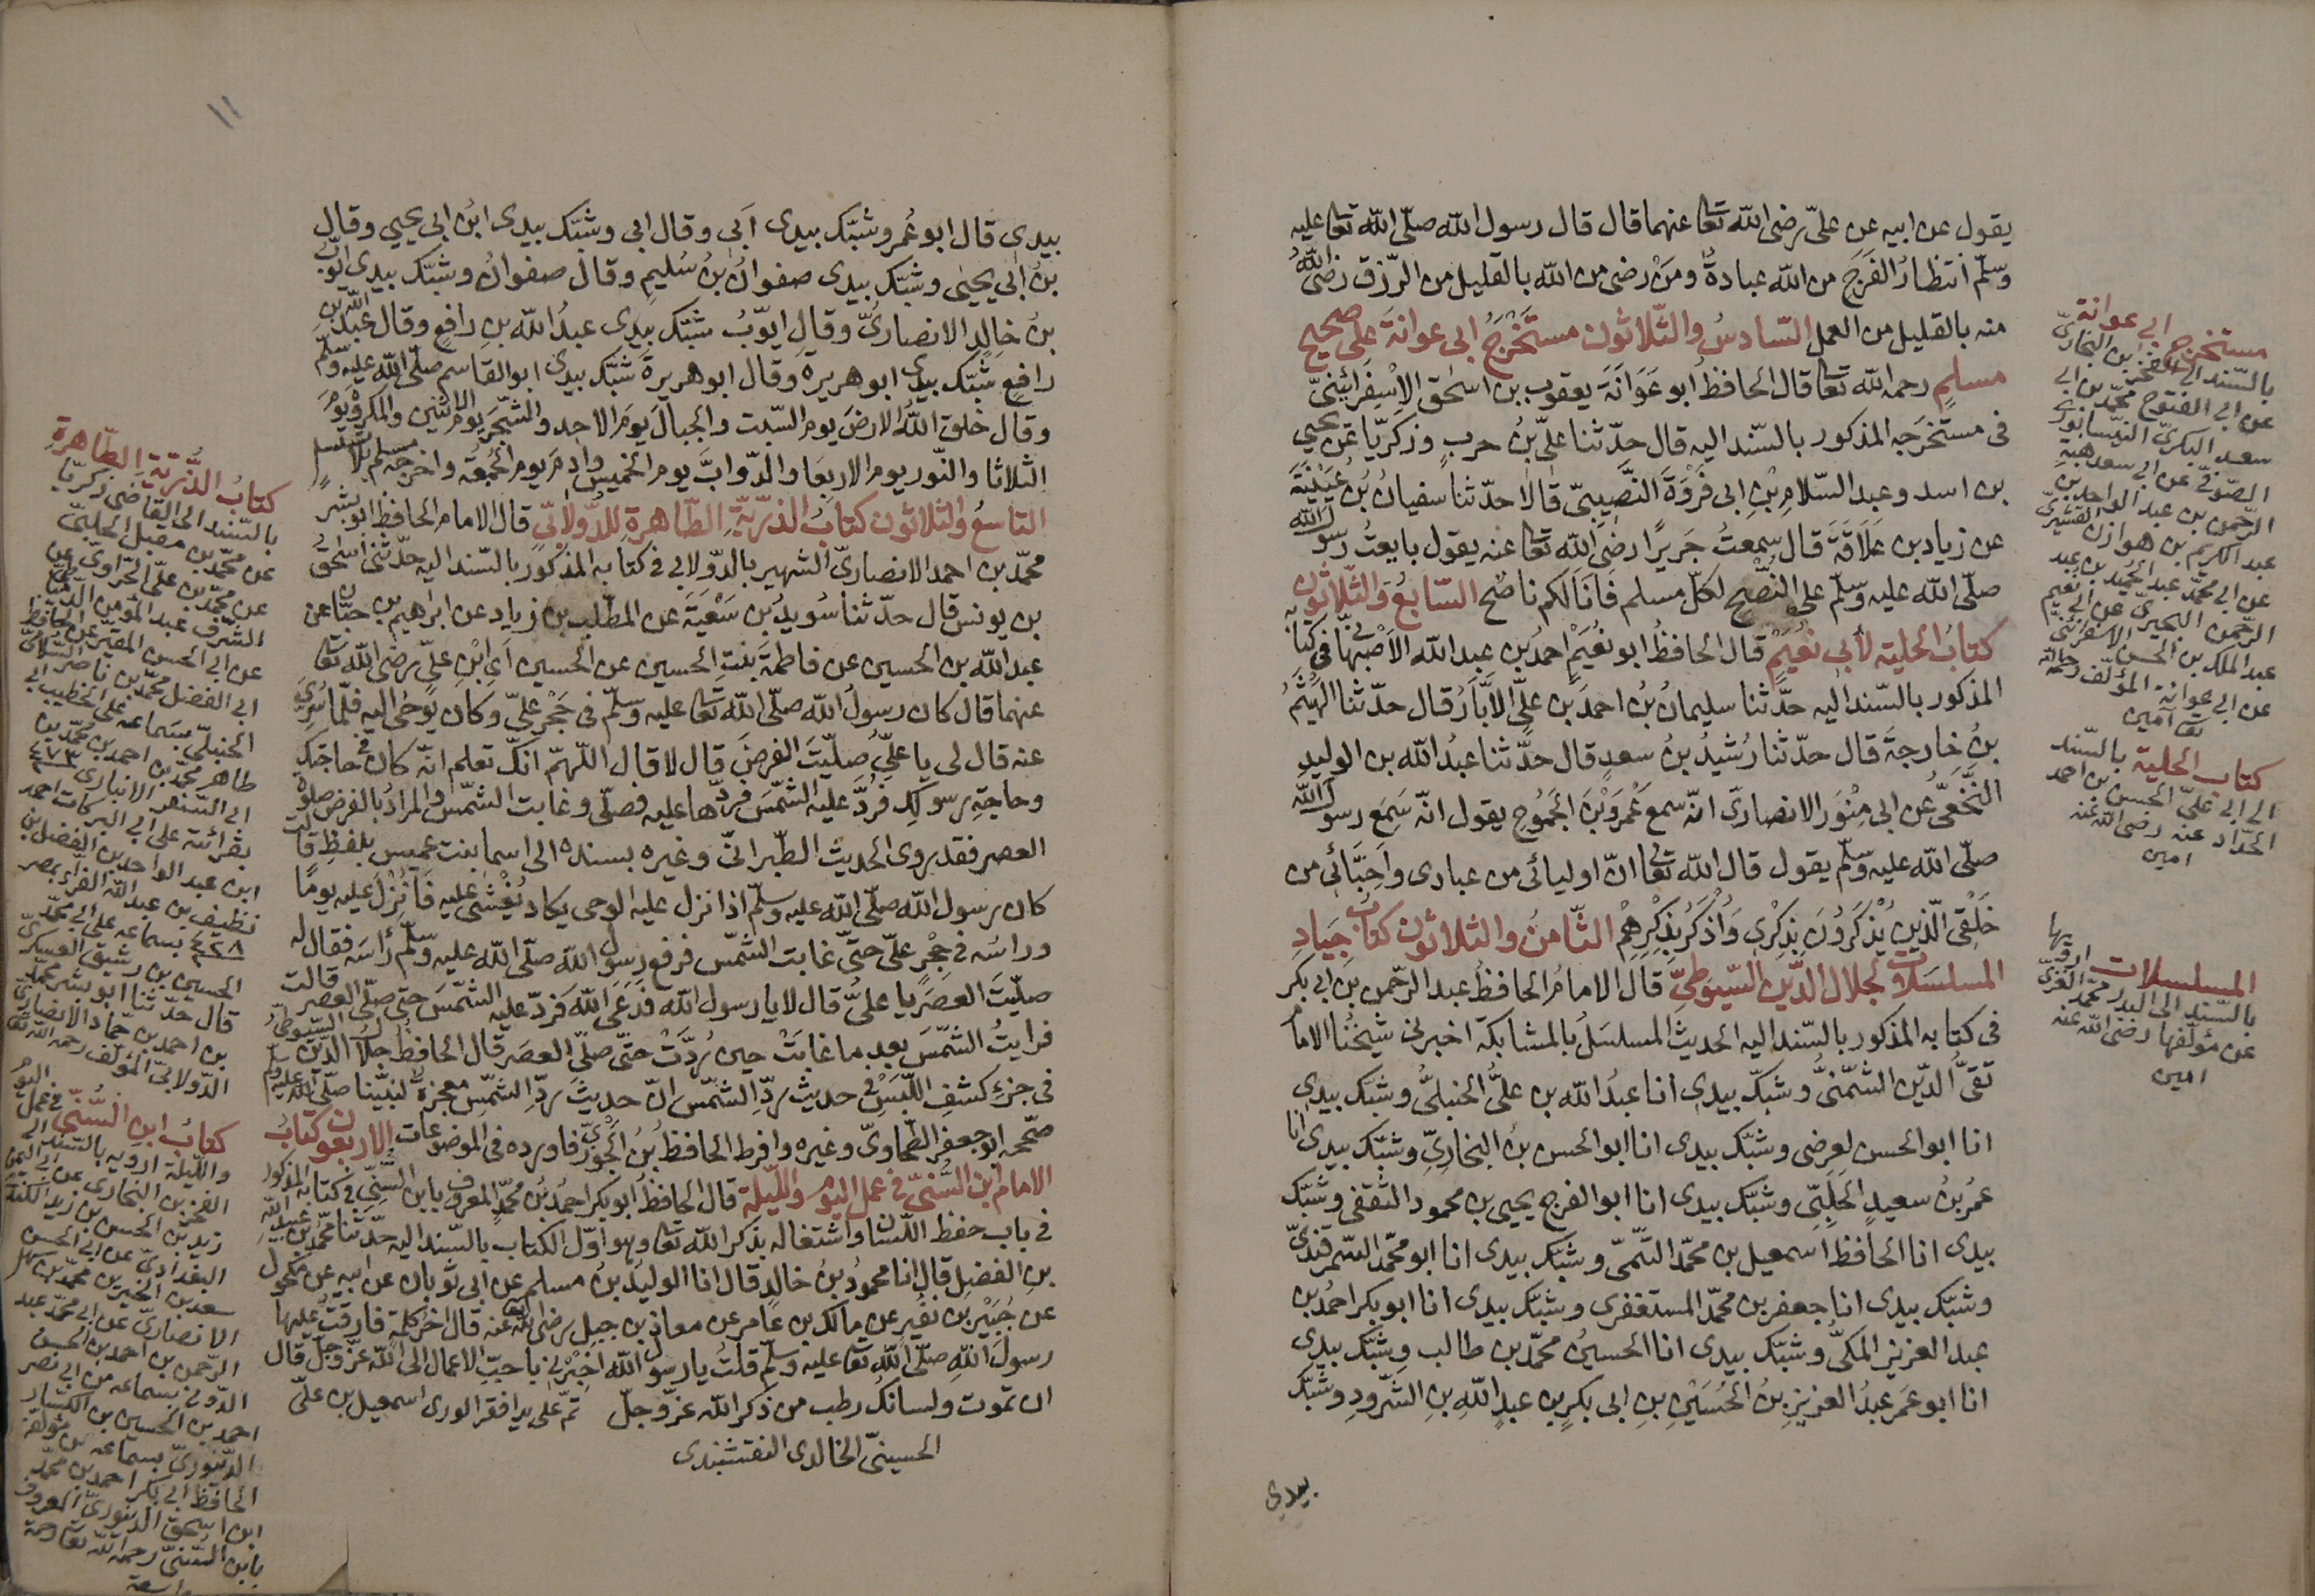 يقول عن ابيه عن علىّ رضى الله تعا عنهما قال قال رسول الله صلّى الله تعا عليه
وسلّم انتظارُ الفَرَجِ من الله عبادةٌ ومَنْ رضى من الله بالقليل من الرّزق رضى اللّٰهُ
منه بالقليل من العمل السّادسُ والثّلاثون مستَخْرَجُ ابى عوانةَ على صحيح
مسلمٍ رحمه الله تعا قال الحافظُ ابو عَوَانَةَ يعقوب بن اسحٰق الاِسْفِرائِنىّ
فى مستخرَجه المذكور بالسّند اليه قال حدّثنا علىّ بنُ حربٍ وزكريّا بن يحيى
بن اسد وعبد السّلامِ بْنِ ابى فَرْوَةَ النَّصِيبِىّ قالا حدّثنا سفيانُ بْنُ عُيَيْنَةَ
عن زياد بن عَلَاقَةَ قال سمعتُ جَريرًا رضى الله تعا عنه يقول بايعتُ رسول الله
صلّى الله عليه وسلّم على النُّصْحِ لكلّ مسلم فَاِنّى لكم ناصح السّابعُ والثّلاثون
كتابُ الحلية لأبى نُعَيْمٍ قال الحافظُ ابو نُعَيْمٍ احمدُ بن عبد الله الاَصْبهانىّ فى كتابه
المذكور بالسّند اليه حدَّثنا سليمانُ بنُ احمدَ بن علىّ الاَبَّارُ قال حدّثنا الهَيْثَمُ
بنُ خارجةَ قال حدّثنا رُشيدُ بنُ سعدٍ قال حدَّثنا عبدُ الله بن الوليدِ
النَّخَعِىُّ عن ابى مِنْوَر الانصارىّ انّه سمع عَمْرَوبْنَ الجَموحِ يقول انّه سَمِعَ رسول الله
صلّى الله عليه وسلّم يقول قال الله تعالى انّ اوليائى من عبادى واَحِبَّائى من
خَلْقِى الّذين يُذْكَرُونَ بِذِكْرِى وَاُذْكَرُ بِذِكْرِهِمْ الثّامنُ والثلاثون كتابُ جيادِ
المسلسَلات لجلال الدّين السّيوطىّ قال الامامُ الحافظُ عبد الرّحمن بن ابى بكر
فى كتابه المذكور بالسّند اليه الحديثَ المسلسَلُ بالمشابكة اخبرنى شيخُنا الامامُ
تقىُّ الدّين الشُّمُنّىُّ وشبّك بيدى انا عبدُ الله بن علىّ الحنبلىُّ وشبّك بيدى
انا ابو الحسن لعرضى وشبّك بيدى انا ابو الحسن بنُ البخارىّ وشبّك بيدى انا
عمرُ بنُ سعيدٍ الحَلَبِىّ وشبّك بيدى انا ابو الفرج يحيى بن محمود الثقفى وشبّك
بيدى انا الحافظ اسمعيل بن محمّد التّيمىّ وشبّك بيدى انا ابو محمّد السّمرقندىّ
وشبّك بيدى انا جعفر بن محمّد المستغفرى وشبّك بيدى انا ابو بكر احمدُ بن
عبد العزيز المكّىُّ وشبّك بيدى انا الحسينُ محمّد بن طالب وشبّك بيدى
انا ابو عَمَر عبدُ العزيزِ بنُ الحُسَيْنِ بنِ ابى بكرِ بن عبدِ اللهِ بنِ الشّرودِ وشبّك
بيدى
مستخرج ابى عوانة
بالسّند الى الفخر بن البخارىّ
عن ابى الفتوح محمّد بن ابى
سعد البكرىّ النيسابورىّ
الصّوفىّ عن ابى سعد هبة
الرّحمن بن عبد الواحد بن
عبد الكريم بن هوازن القشيرىّ
عن ابى محمّد عبد الحميد بن عبد
الرّحمن البحيرىّ عن ابى نعيم
عبد الملك بن الحسن الاسفرائنىّ
عن ابى عوانة المؤلّف رحمه الله
تعا امين
كتاب الحلية بالسّند
الى ابى علىّ الحسن بن احمد
الحدّاد عنه رضى الله عنه
امين
المسلسلات ارويها
بالسّند الى البدر محمّد الغزّىّ
عن مؤلّفها رضى الله عنه
امين
١١
بيدى قال ابو عُمر وشبّك بيدى اَبى وقال ابى وشبّك بيدى ابن ابى يحيى وقال
بن ابى يحيى وشبّك بيدى صفوانُ بنُ سُليمٍ وقال صفوانُ وشبّك بيدى ايّوبُ
بنُ خالدٍ الانصارىُّ وقال ايّوبُ شبّك بيدى عبدُ الله بن رافعٍ وقال عبد الله بن
رافعٍ شبّك بيدى ابو هريره وقال ابو هريرة شبّك بيدى ابو القاسم صلّى الله عليه وسلّم
وقال خلق اللهُ الارضَ يوم السّبت والجبالَ يومَ الاحد والشّجرَ يوم الاثنين والمكروه يوم
الثلاثا والنّور يوم الاربعا والدّوابَّ يوم الخميس واٰدم يوم الجُمعة واخرجه مسلم بلا تسلسل
التاسعُ والثلاثون كتابُ الذرّيّةِ الطّاهرةِ للدُّولابىّ قال الامام الحافظ ابو بشر
محمّد بن احمد الانصارىّ الشهير بالدّولابى فى كتابه المذكور بالسّند اليه حدّثنى اسحٰق
بن يونس قال حدّثنا سُويدُ بن سَعْيَةَ عن المطّلب بن زياد عن ابراهيم بن حبّان عن
عبد الله بن الحسين عن فاطمةَ بنتِ الحسين عن الحسين اى ابْنِ علىّ رضى الله تعا
عنهما قال كان رسولُ الله صلّى الله تعا عليه وسلّم فى حَجْرِ علىّ وكان يُوحٰى اليه فلمّا سُرِّىَ
عنه قال لى يا علىُّ صلّيتَ الفرضَ قال لا قال اللّهمّ انّك تعلم انّه كان فى حاجتك
وحاجةِ رسولك فرُدَّ عليه الشّمسَ فردّها عليه فصلّى وغابت الشّمس والمرادُ بالفرض صلوة
العصر فقد روى الحديث الطّبرانىّ وغيره بسنده الى اسما بنت عميس بلفظِ قالت
كان رسول الله صلّى الله عليه وسلّم اذا نزل عليه الوحى يكاد يُغْشى عليه فَاُنْزِلَ عليه يومًا
وراسُه فى حِجْر علىّ حتّى غابت الشّمس فرفع رسول الله صلّى الله عليه وسلّم رأسَه فقال له
صلّيتَ العصرَ يا علىُّ قال لا يا رسول الله فَدَعَى اللّهَ فردّ عليه الشّمسَ حتى صلّى العصر قالت
فرايتُ الشّمسَ بعد ما غابَتْ حين رُدَّتْ حتّى صلّى العصرَ قال الحافظُ جلالُ الدّين السّيوطىُّ
فى جزء كشفِ اللَّبَسِ فى حديث ردِّ الشّمس انّ حديثَ ردِّ الشّمس معجزة لنبيّنا صلّى الله عليه وسلّم
صحّحه ابو جعفر الطّحاوىّ وغيره وافرط الحافظُ بنُ الجَوْزىّ فاورده فى الموضوعات الاربعون كتابُ
الامام بن السُّنىّ فى عمل اليوم والليلة قال الحافظُ ابو بكر احمدُ بن محمّدٍ المعروف بابن السُّنّى فى كتابه المذكور
فى باب حفظ اللّسان واشتغاله بذكر الله تعا وهو اوّل الكتاب بالسّند اليه حدّثنا محمّد بن عبيد الله
بن الفضل قال انا محمودُ بنُ خالدٍ قال انا الوليدُ بنُ مسلم عن ابى ثوبان عن ابيه عن مكحول
عن جُبَيْر بن نفير عن مالك بن عامر عن معاذ بن جبل رضى الله عنه قال اخرُ كلمةٍ فارقتُ عليها
رسولَ اللهِ صلّى الله تعا عليه وسلّم قلتُ يا رسول الله اَخْبِرْنى باحبّ الاعمال الى الله عزّ وجلّ قال
ان تموت ولسانك رطب من ذكر الله عزّ وجلّ تمّ على يد افقر الورى اسمعيل بن علىّ
الحسينىّ الخالدى النقشبندى
كتابُ الذُّرّيّةِ الطّاهرةِ
بالسّند الى القاضى زكريّا
عن محمّد بن مقبل الحلبىّ
عن محمّد بن علىّ الحرّاوىّ عن
الشّرف عبد المؤمن الدّمياطىّ
عن ابى الحسن المقيّر عن الحافظ
ابى الفضل محمّد بن ناصر السّلامىّ
الحنبلىّ بسماعه على الخطيب ابى
طاهر محمّد بن احمد بن محمّد بن
ابى السّقر الانبارى ٤٧٣
بقرائته على ابى البركات احمد
ابن عبد الواحد بن الفضل بن
نظيف بن عبد الله الفرّاء بمصر
٤٢٨ بسماعه على ابى محمّد
الحسين بن رشيق العسكرىّ
قال حدّثنا ابو بشر محمّد
بن احمد بن حمّاد الانصارىّ
الدّولابىّ المؤلّف رحمه الله تعا
كتابُ ابن السُّنّى فى عمل اليوم
والليلة ارويه بالسّند الى
الفخر بن البخارى عن ابى اليمن
زيد بن الحسن بن زيد الكندىّ
البغدادىّ عن ابى الحسن
سعد بن الخير بن محمّد بن سهل
الانصارىّ عن ابى محمّد عبد
الرّحمن بن احمد بن الحسن
الدّونى بسماعه من ابى نصر
احمد بن الحسين بن الكسّار
الدّينورىّ بسماعه من مؤلّفه
الحافظ ابى بكر احمد بن محمّد
ابن اسحٰق الدينورىّ المعروف
بابن السّنىّ رحمه الله تعا رحمة
واسعة